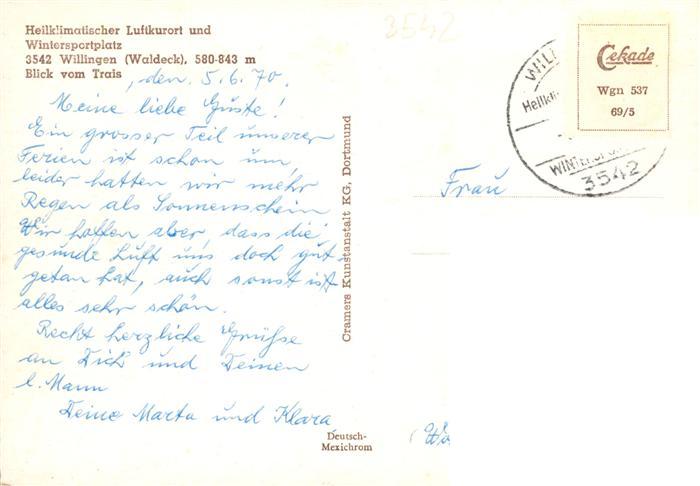 Heilklimatischer Luftkurort und
Wintersportplatz
3542 Willingen (Waldeck), 580-843 m
Blick vom Trais
, den 5.6.70.
Meine liebe Guste!
Ein grosser Teil unserer
Ferien ist schon um,
leider hatten wir mehr
Regen als Sonnenschein
Wir hoffen aber, dass die
gesunde Luft uns doch gut-
getan hat, auch sonst ist
alles sehr schön.
Recht herzliche Grüsse
an Dich und Deinen
l. Mann
Deine Marta und Klara
Cramers Kunstanstalt KG, Dortmund
Deutsch-
Mexichrom
3542
Cekade
Wgn 537
69/5
WILL
Heilkli
WINTERSPO
3542
Frau